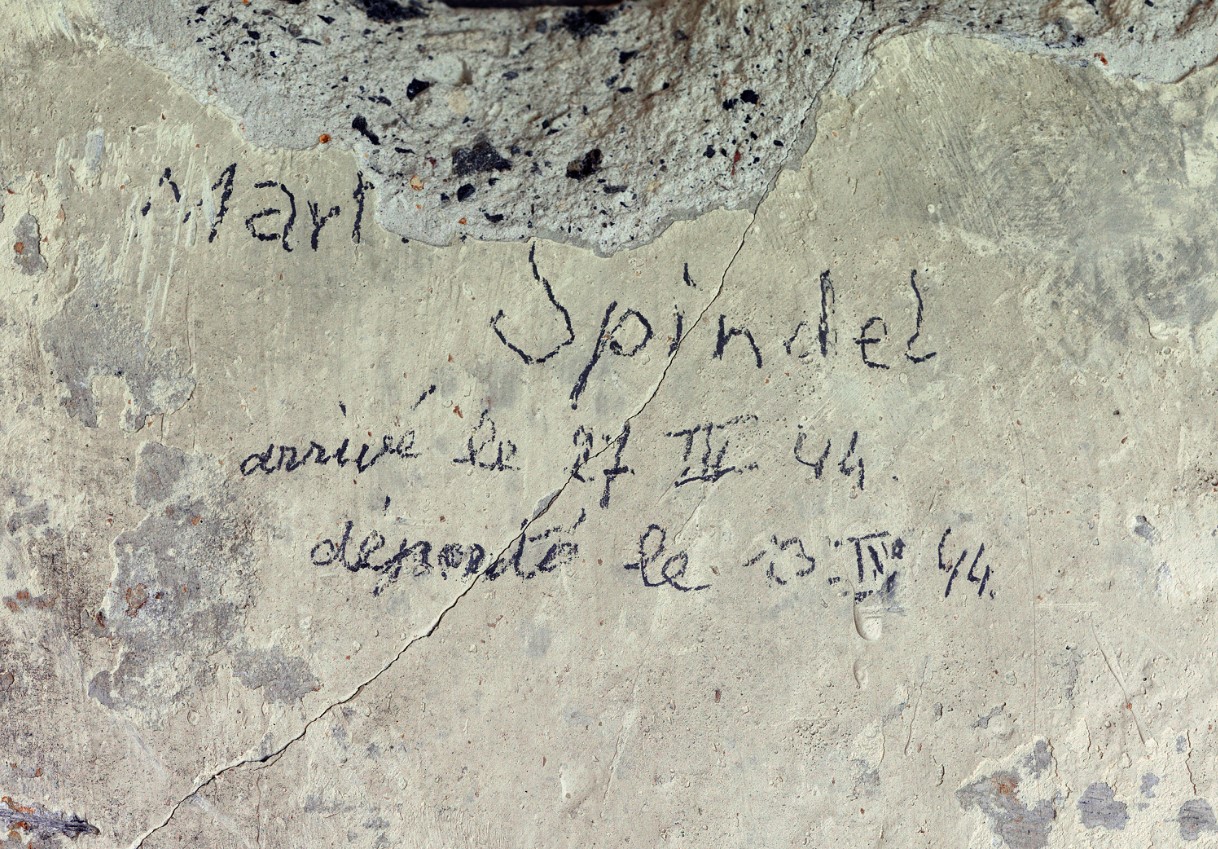 Mart
Spindel
arrivé le 27 III 44.
déporté le 13.IV 44.